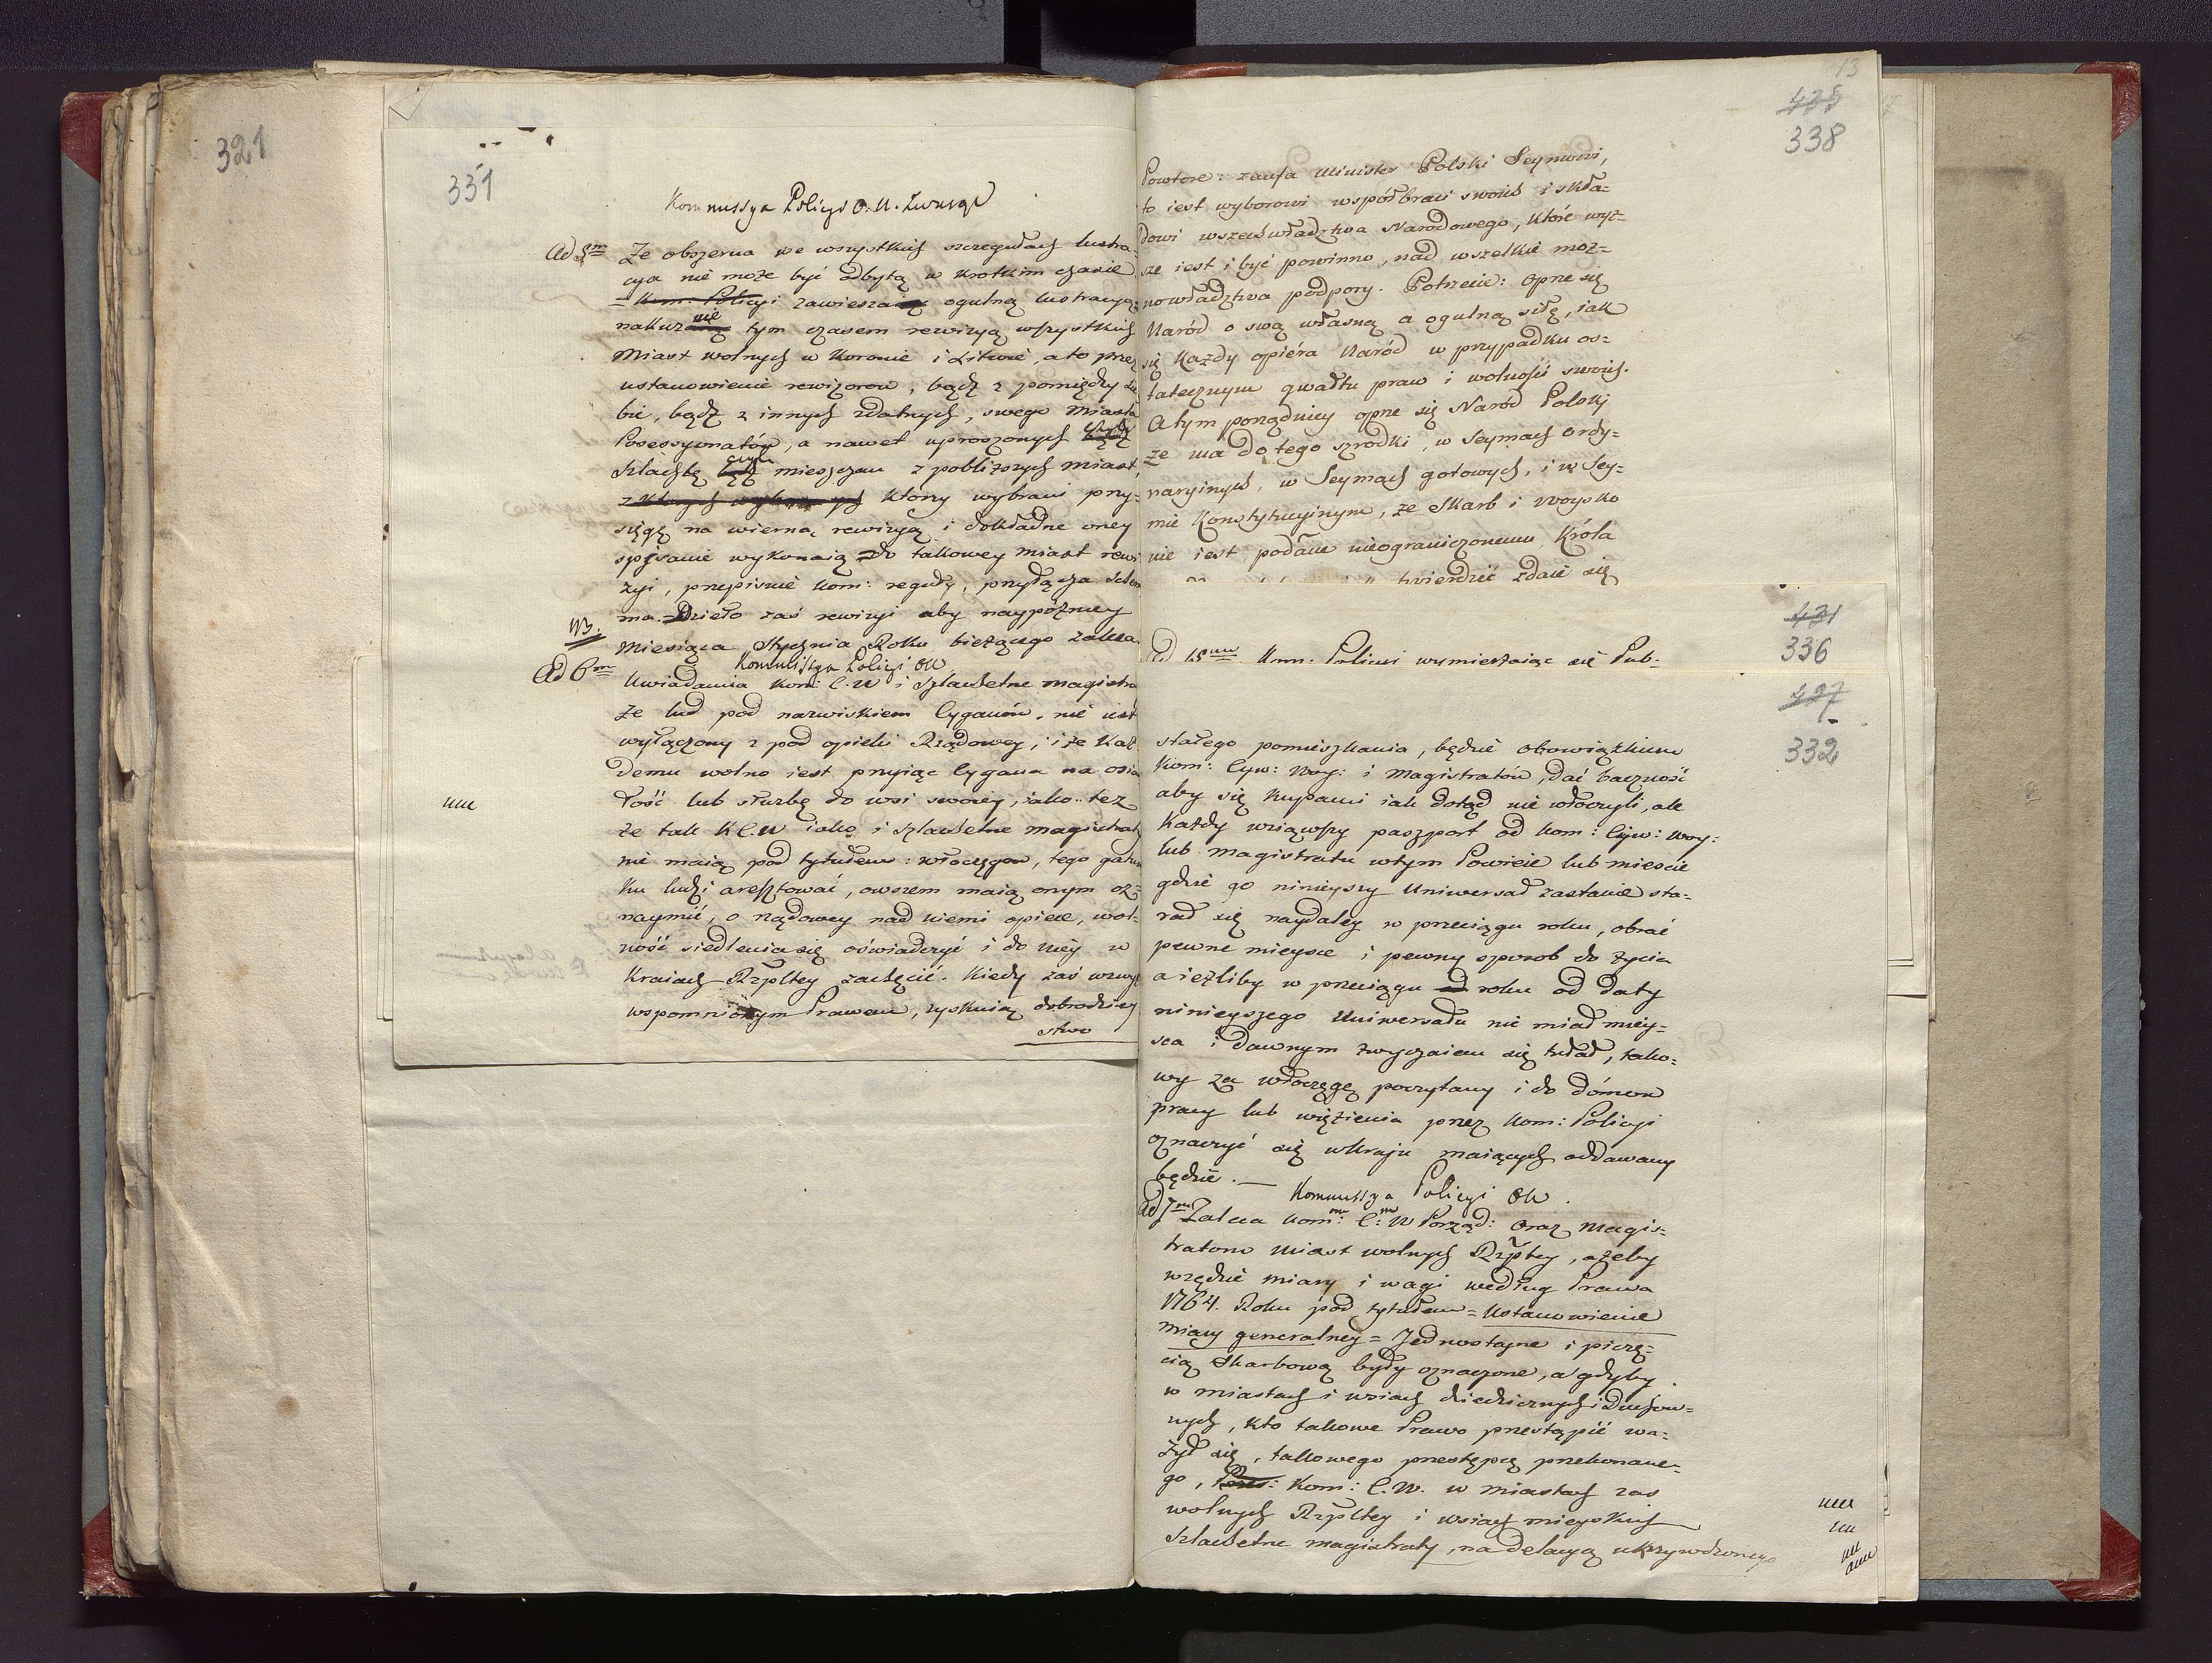 321
331
Kommissya Policyi O. N.
Ad 5m Ze obszerna we wszystkich szczegułach lustra-
cya nie może być odbytą w krotkim czasie
Kom: Policyi zawiesza ogulną lustracyą,
nakazuie tym czasem rewizyą wszystkich
Miast wolnych w Koronie i Litwie, a to przez
ustanowienie rewizorow, bądź z pomiędzy sie
bie, bądź z innych zdatnych, swego Miasta
Possessyonatów, a nawet uproszonych
Szlachtę czyli mieszczan z pobliższych miast,
z ktorych ktorzy wybrani przy-
sięgę na wierną rewizyą i dokładne oney
spisanie wykonaią do takowey miast rewi
zyi, przepisuie Kom: reguły, przyłącza Sche
ma. Dzieło zaś rewizyi aby naypóźniey
NB.
Miesiąca Stycznia Roku bieżącego zaleca.
Kommissya Policyi ON
Ad 6m Uwiadamia Kom: C.W i Szlachetne magistra
że lud pod nazwiskiem Cyganów, nie iest
wyłączony z pod opieki Rządowey, i że Każ
demu wolno iest przyiąc Cygana na osia
dłość lub służbę do wsi swoiey, iako też
że tak K C.W iako i Szlachetne magistraty
nie maią pod tytułem: włoczęgow, tego gatun
ku ludzi aresztować, owszem maią onym oz=
naymić, o rządowey nad niemi opiece, wol=
ność siedlenia się oświadczyć i do niey w
Kraiach Rzpltey zachęcić. Kiedy zaś
wspomnionym Prawem, zyskuią dobrodziey
stwo
13
435
338
Powtore: zaufa Minister Polski Seymowi,
to iest wyborowi współbraci swoich i skła=
dowi wszechwładztwa Narodowego, które wyż=
sze iest i być powinno, nad wszelkie moż=
nowładztwa podpory. Potrzecie: Oprze się
Naród o swą własną a ogulną siłę, iak
się Każdy opiéra Naród w przypadku os=
tatecznym gwałtu praw i wolności swoich.
A tym porządniey oprze się Naród Polski
że ma do tego szrodki, w Seymach ordy=
naryinych, w Seymach gotowych, i w Sey=
mie Konstytucyinym, że Skarb i Woysko
nie iest podane nieograniczonemu Króla
twierdzić zdaie się
431
336
Ad 15um Kom: Policyi wymieszaiąc się Pub-
427
332
stałego pomieszkania, będzie obowiązkiem
Kom: Cyw: Woy: i Magistratów, dać baczność
aby się kupami iak dotąd nie włoczyli, ale
Każdy wziąwszy paszport od Kom: Cyw: Woy:
lub magistratu w tym Powiecie lub mieście
gdzie go ninieyszy Uniwersał zastanie sta=
rał się naydaley w przeciągu roku, obrać
pewne mieysce i pewny sposob do życia
a ieżliby w przeciągu roku od daty
ninieyszego Uniwersału nie miał miey=
sca i dawnym zwyczaiem się tułał, tako=
wy za włoczęgę poczytany i do dómow
pracy lub więzienia przez Kom: Policyi
oznaczyć się w kraju maiących oddawany
będzie.—
Kommissya Policyi ON.
Ad 7m Zaleca Kom: C: W Porząd: Oraz Magis=
tratom Miast wolnych Rzpltey, ażeby
wzędzie miary i wagi według Prawa
1764. Roku pod tytułem = Ustanowienie
miary generalney = Jednostayne i pieczę=
cią Skarbową były oznaczone, a gdyby
w miastach i wsiach dziedzicznych i Duchow=
nych, kto takowe Prawo przestąpić wa=
żył się, takowego przestępcę przekonane=
go, Kom: C. W. w miastach zaś
wolnych Rzpltey i wsiach mieyskich
Szlachetne magistraty, na delacyą ukrzywdzonego